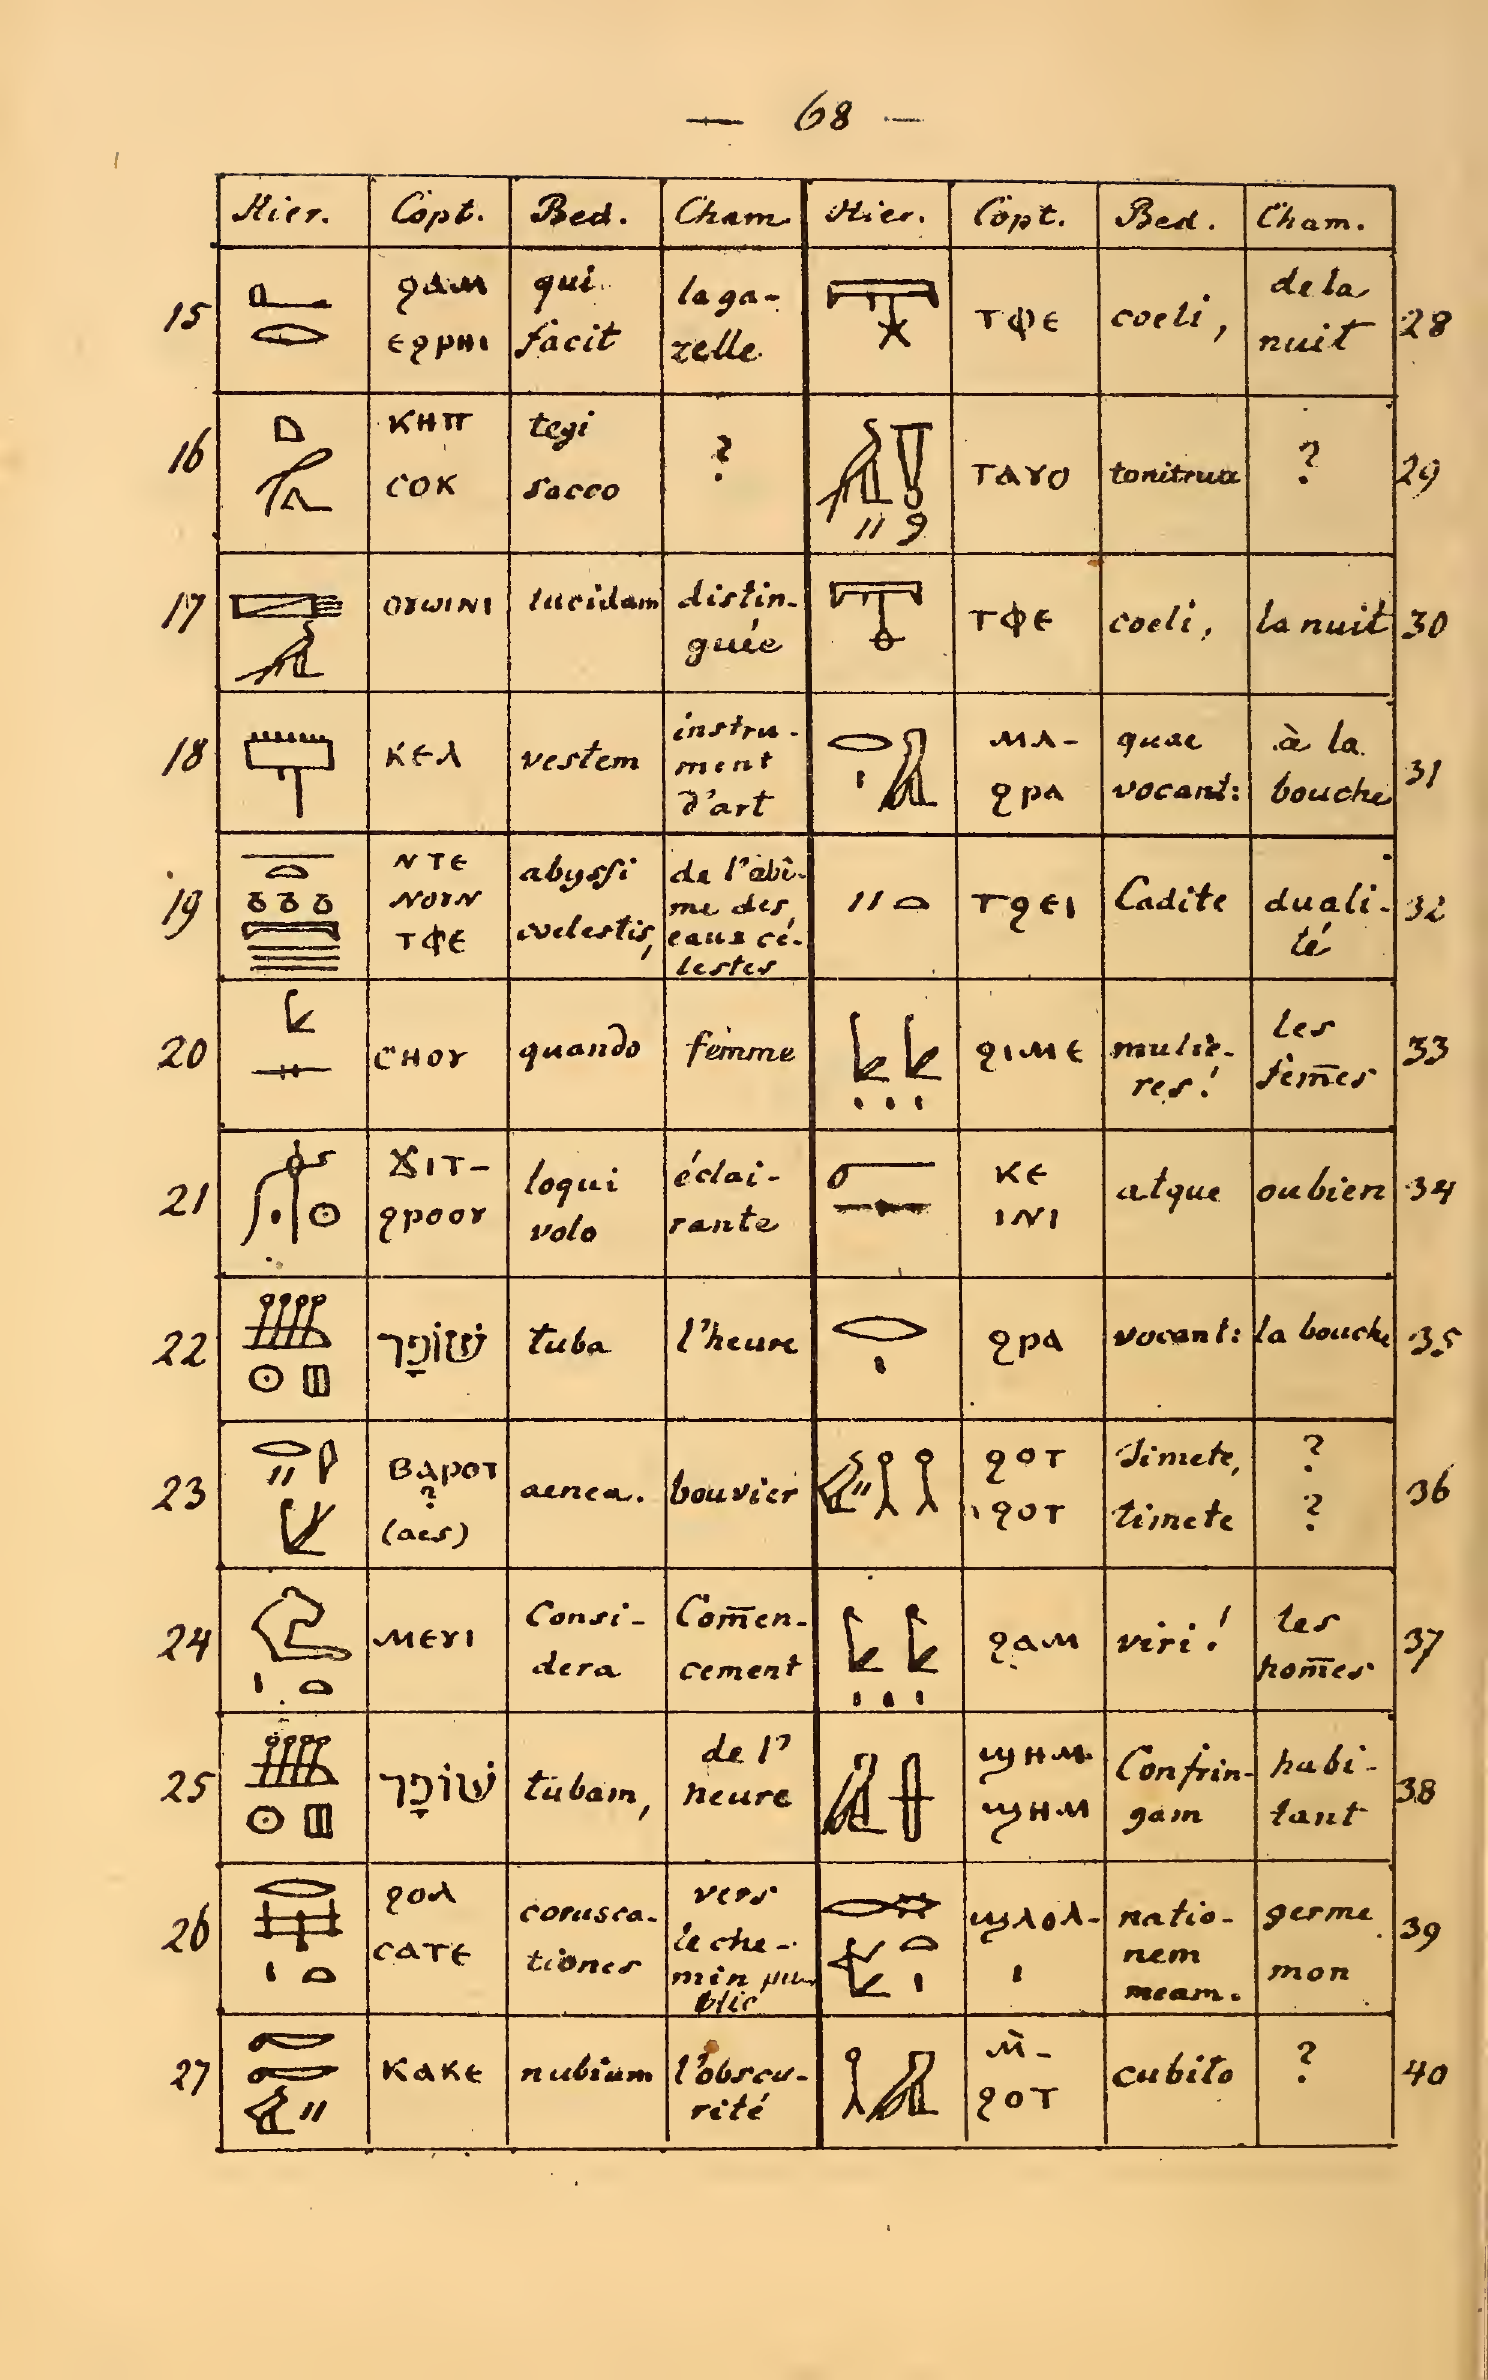 — 68 —
Hier. Copt. Bed. Cham. Hier. Copt. Bed. Cham.
15 ϩⲁⲙ ⲉϩⲣⲏⲓ qui facit la ga-zelle ⲧⲫⲉ coeli, de la nuit 28
16 ⲕⲏⲡ ⲥⲟⲕ tegi sacco ? ⲧⲁⲩⲟ tonitrua ? 29
17 ⲟⲩⲱⲓⲛⲓ lucidam distin-guée ⲧⲫⲉ coeli, la nuit 30
18 ⲕⲉⲗ vestem instru-ment d'art ⲙⲁ-ϩⲣⲁ quae vocant: à la bouche 31
19 ⲛⲧⲉ ⲛⲟⲩⲛ ⲧⲫⲉ abyssi coelestis, de l'abî-me des eaux cé-lestes ⲧϩⲉⲓ Cadite duali-té 32
20 ⲥⲏⲟⲩ quando femme ϩⲓⲙⲉ mulie-res! les fem̅es 33
21 ϫⲓⲧ-ϩⲣⲟⲟⲩ loqui volo éclai-rante ⲕⲉ ⲓⲛⲓ atque ou bien 34
22 שׁוֹפָר tuba l'heure ϩⲣⲁ vocant: la bouche 35
23 ⲃⲁⲣⲟⲧ ? (aes) aenea. bouvier ϩⲟⲧ ϩⲟⲧ timete, timete ? ? 36
24 ⲙⲉⲩⲓ Consi-dera Com̅en-cement ϩⲁⲙ viri! les hom̅es 37
25 שׁוֹפָר tubam, de l'heure ϣⲏⲙ ϣⲏⲙ Confrin-gam habi-tant 38
26 ϩⲟⲗ ⲥⲁⲧⲉ corusca-tiones vers le che-min pu-blic ϣⲗⲟⲗ-ⲓ natio-nem meam. germe mon 39
27 ⲕⲁⲕⲉ nubium l'obscu-rité ⲙ̀-ϩⲟⲧ cubito ? 40